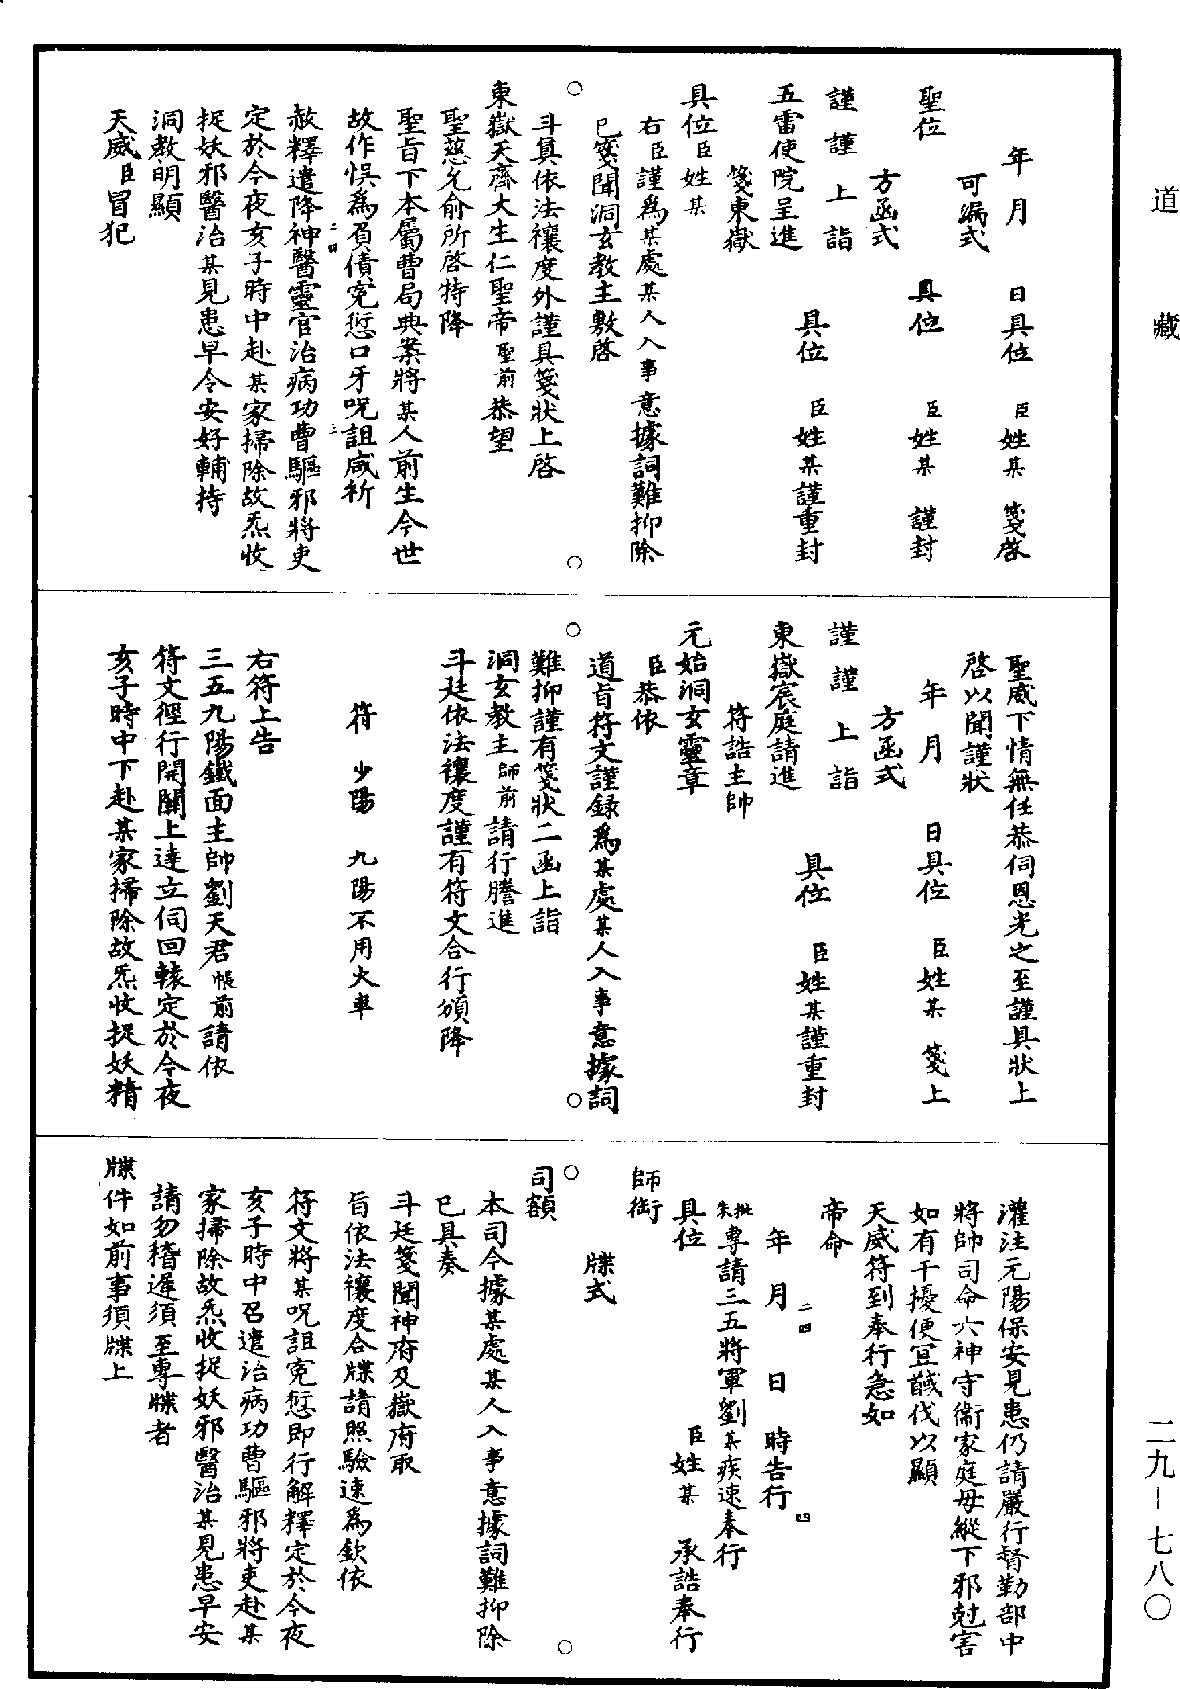 道藏
年月　日具位　臣姓某　箋啓
可漏式
聖位　具位　臣姓某　謹封
方函式
謹謹上詣
五雷使院呈進　具位　臣姓某謹重封
箋東嶽
具位臣姓某
右臣謹為某處某人入事意據詞難抑除
已箋聞洞玄教主敷啓
斗真依法禳度外謹具箋狀上啓
東嶽天齊大生仁聖帝聖前恭望
聖慈允俞所啓特降
聖旨下本屬曹局典案將某人前生今世
故作悞為負債寃愆口牙呪詛咸祈
二四
三
赦釋遣降神醫靈官治病功曹驅邪將吏
定於今夜亥子時中赴某家掃除故炁收
捉妖邪醫治某見患早令安好輔持
洞教明顯
天威臣冒犯
聖威下情無任恭伺恩光之至謹具狀上
啓以聞謹狀
年月　日具位　臣姓某　箋上
方函式
謹謹上詣
東嶽宸庭請進　具位　臣姓某謹重封
符誥主帥
元始洞玄靈章
臣恭依
道旨符文謹録為某處某人入事意據詞
難抑謹有箋狀二函上詣
洞玄教主師前請行謄進
斗廷依法禳度謹有符文合行頒降
符　少陽　九陽不用火車
右符上告
三五九陽鐵面主帥劉天君帳前請依
符文徑行開關上達立伺回轅定於今夜
亥子時中下赴某家掃除故炁收捉妖精
灌注元陽保安見患仍請嚴行督勤部中
將帥司命六神守衞家庭毋縱下邪尅害
如有干擾便宜馘伐以顯
天威符到奉行急如
帝命
二四
四
年　月　日　時告行
朱批專請三五將軍劉某疾速奉行
具位　臣姓某　承誥奉行
師銜
牒式
司額
本司今據某處某人入事意據詞難抑除
已具奏
斗廷箋聞神府及嶽府取
旨依法禳度合牒請照驗速為欽依
符文將某呪詛寃愆即行解釋定於今夜
亥子時中召遣治病功曹驅邪將吏赴某
家掃除故炁收捉妖邪醫治某見患早安
請勿稽遲須至專牒者
牒件如前事須牒上
二九－七八〇